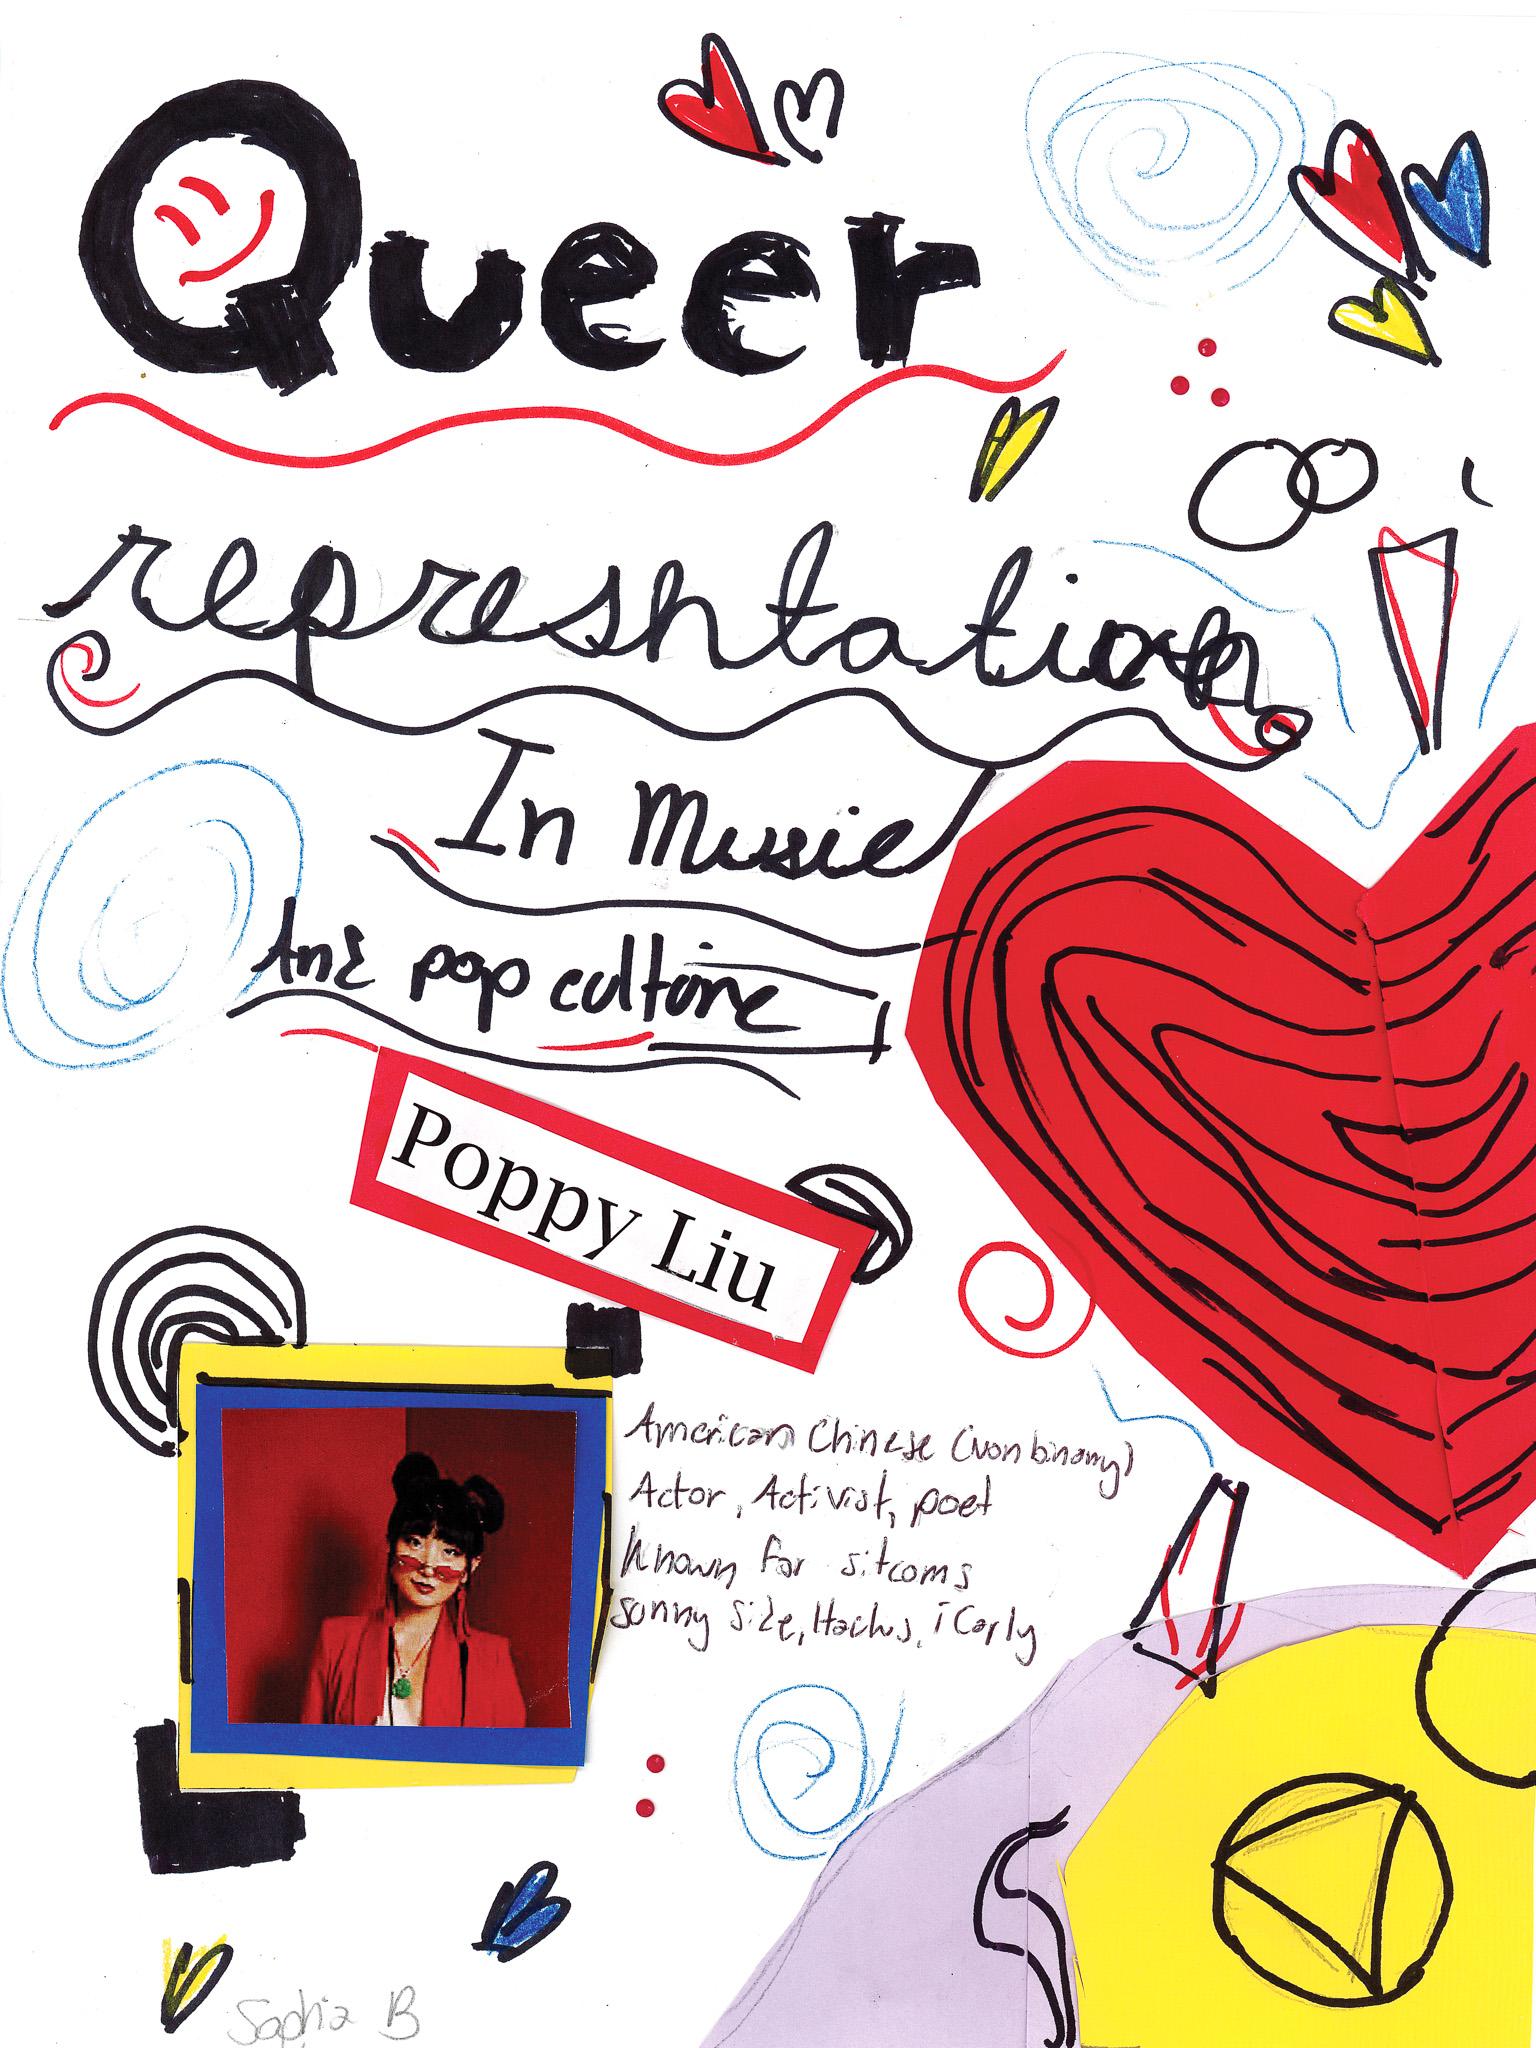 Queer
represntation
In Music
And pop culture
Poppy Liu
American Chinese (nonbinary)
Actor, Activist, poet
known for sitcoms
sunny side, Hacks, iCarly
Sophia B